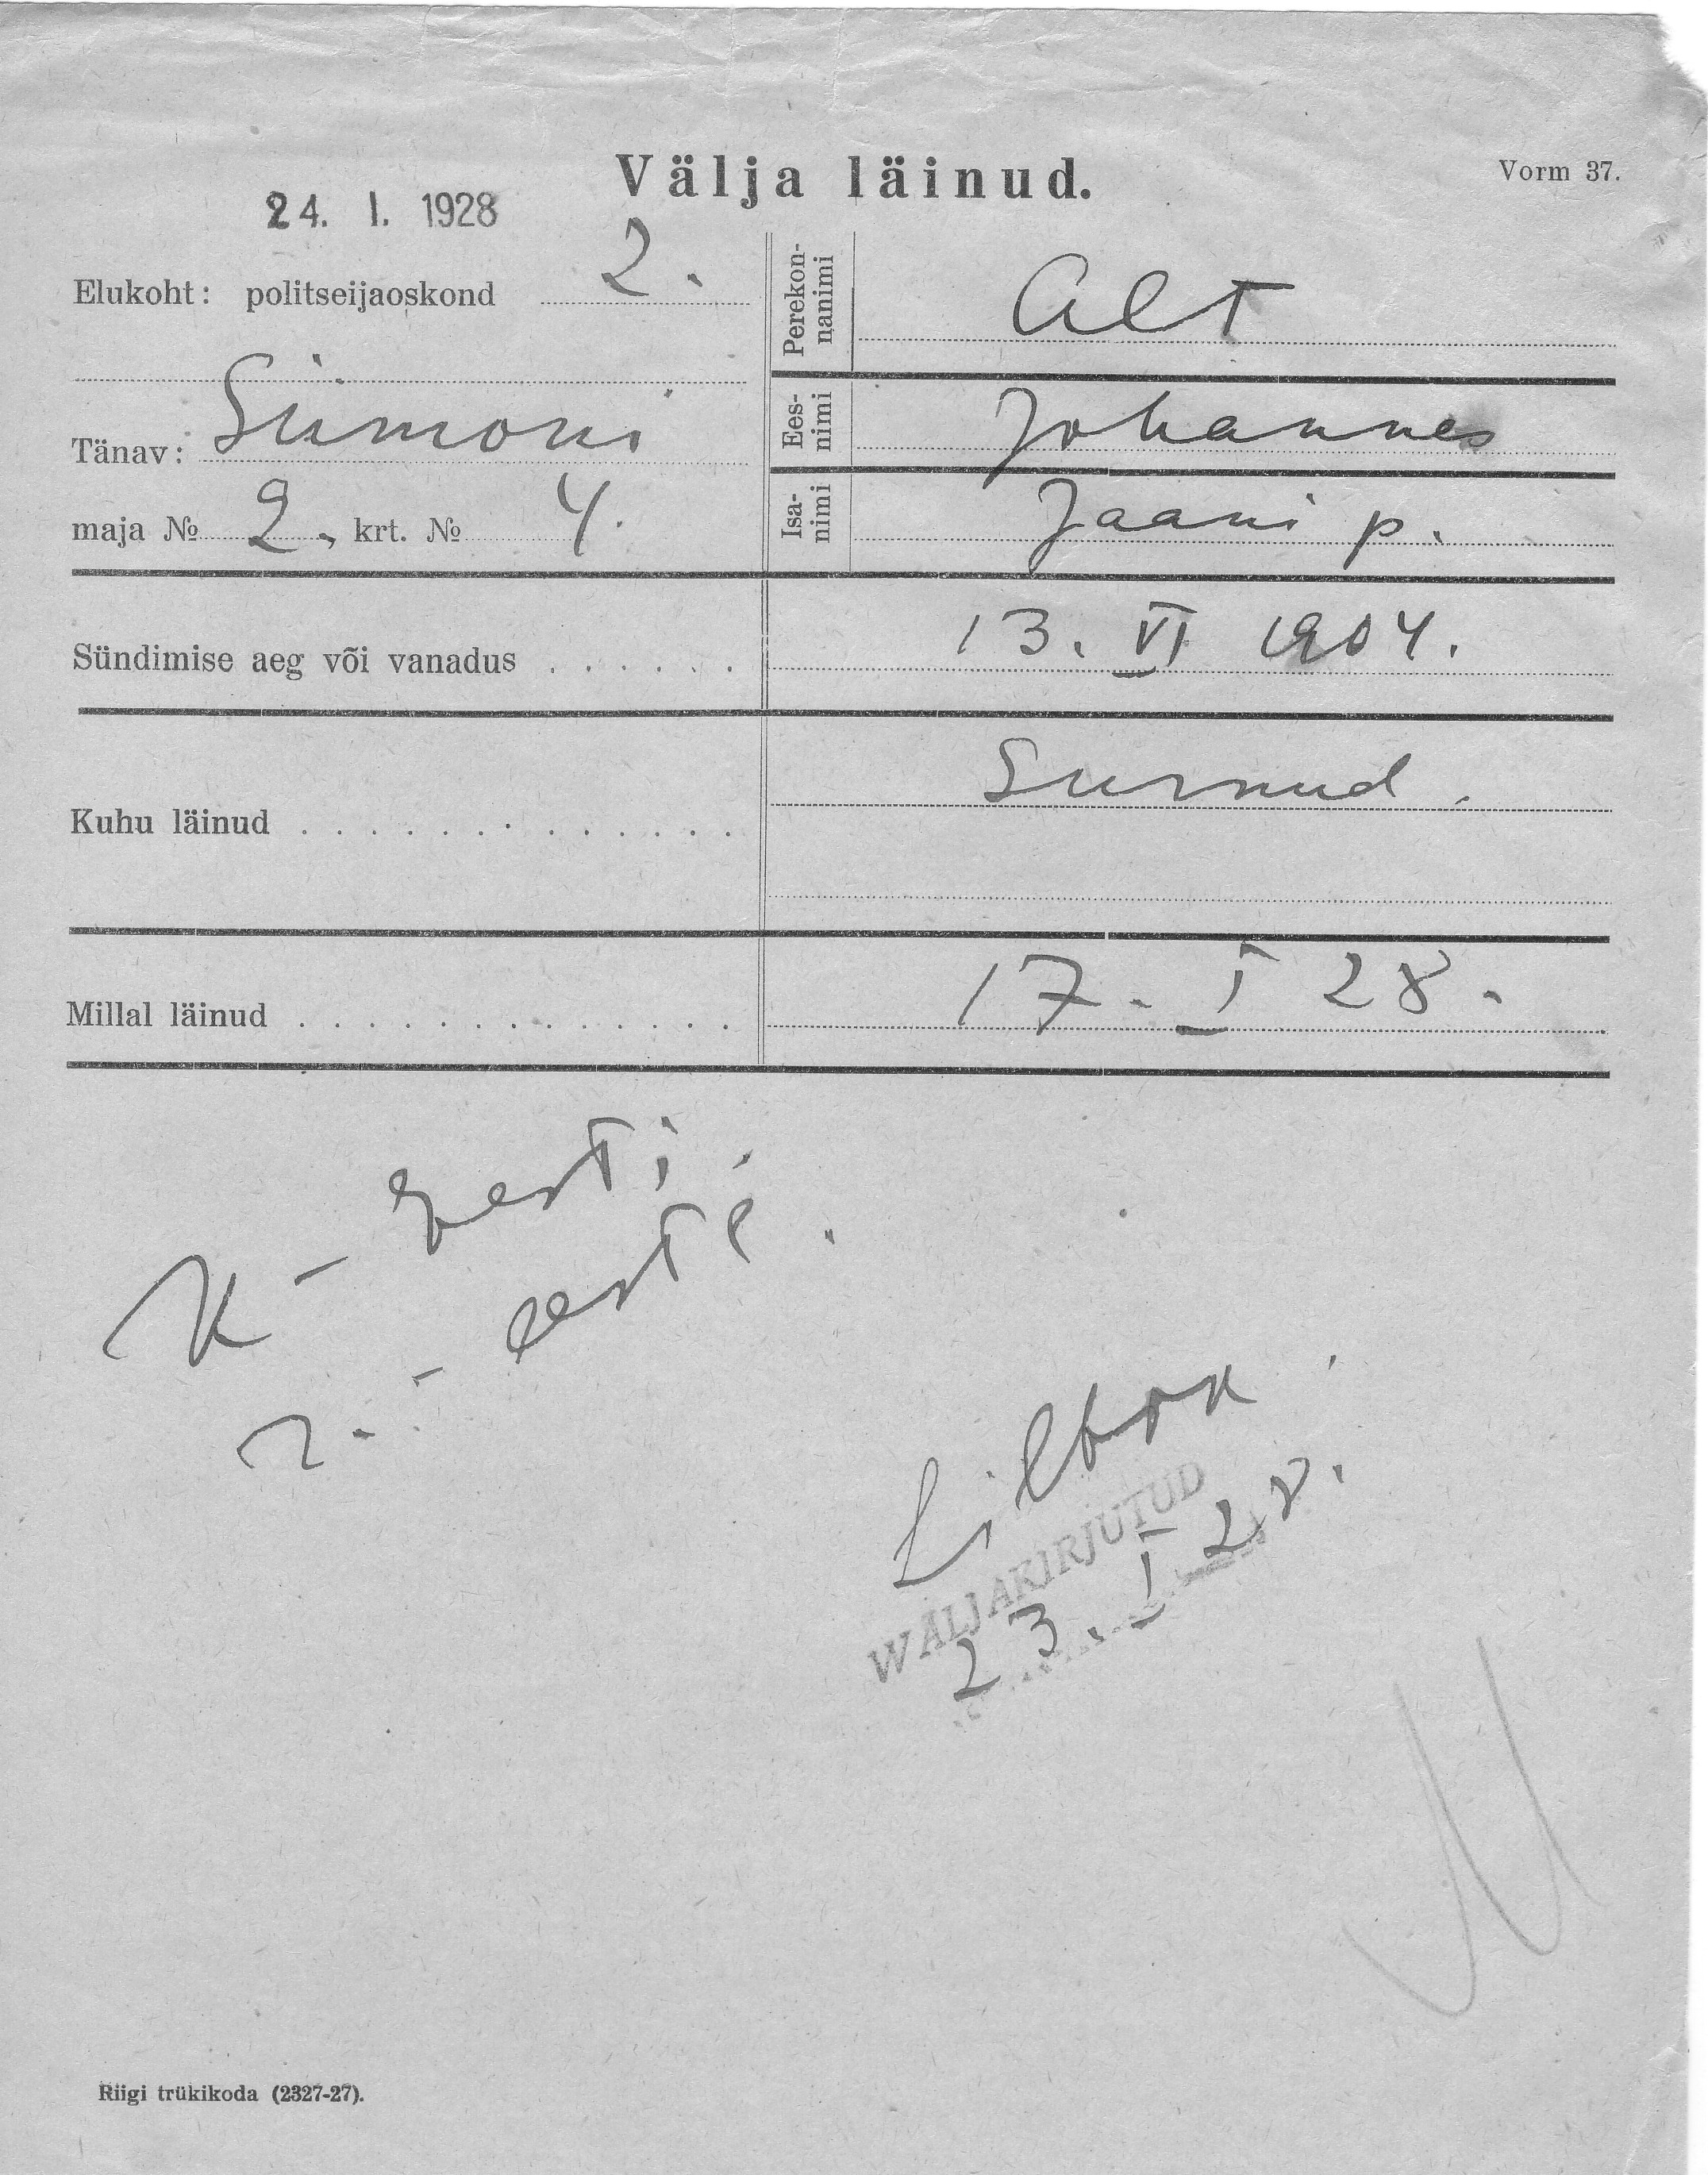 Välja läinud.
Vorm 37.
24. I. 1928
Elukoht: politseijaoskond 2.
Tänav: Siimoni
maja № 2, krt. № 4.
Perekon-
nanimi
Alt
Ees-
nimi
Johannes
Isa-
nimi
Jaani p.
Sündimise aeg või vanadus . . . . . .
13. VI 1904.
Kuhu läinud . . . . . . . . . . . . . .
Surnud.
Millal läinud . . . . . . . . . . . . . .
17. I 28.
K - eesti.
r. - eesti.
WÄLJAKIRJUTUD
23. I 28.
Riigi trükikoda (2327-27).